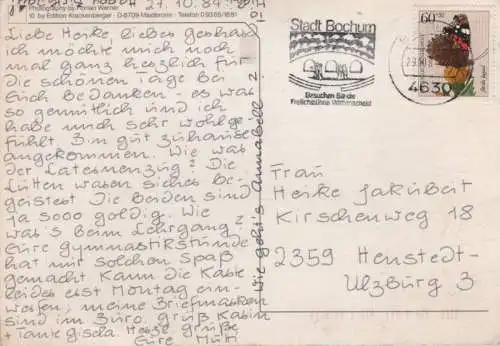 Photography by Florian Werner
10 by Edition Knackenberger · D-6709 Maxdorf · Telefon
27.10.84
Liebe Heike, liebes
ich möchte mich noch
mal ganz herzlich für
die schönen Tage bei
Euch bedanken - es war
so gemütlich und ich
habe mich sehr wohlge-
fühlt. Bin gut zuhause
angekommen. Wie war
der Laternenzug? Die
Lütten waren sicher be-
geistert. Die beiden sind
ja sooo goldig. Wie
war's beim Lehrgang?
Eure Gymnastikstunde
hat mir solchen Spaß
gemacht. Kann die Karte
leider erst Montag ein-
werfen, meine Briefmarken
sind im Büro. Gruß Karin
+ Tante Gisela Herzl. Grüße
Eure Mutti
Wie geht's Annabell?
Stadt Bochum
Besuchen Sie die
Freilichtbühne Wattenscheid
4630
60
Frau
Heike Jakubeit
Kirschenweg 18
2359 Henstedt-
Ulzburg 3